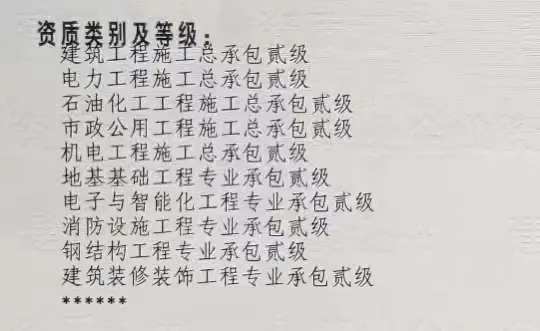 资质类别及等级：
建筑工程施工总承包贰级
电力工程施工总承包贰级
石油化工工程施工总承包贰级
市政公用工程施工总承包贰级
机电工程施工总承包贰级
地基基础工程专业承包贰级
电子与智能化工程专业承包贰级
消防设施工程专业承包贰级
钢结构工程专业承包贰级
建筑装修装饰工程专业承包贰级
******